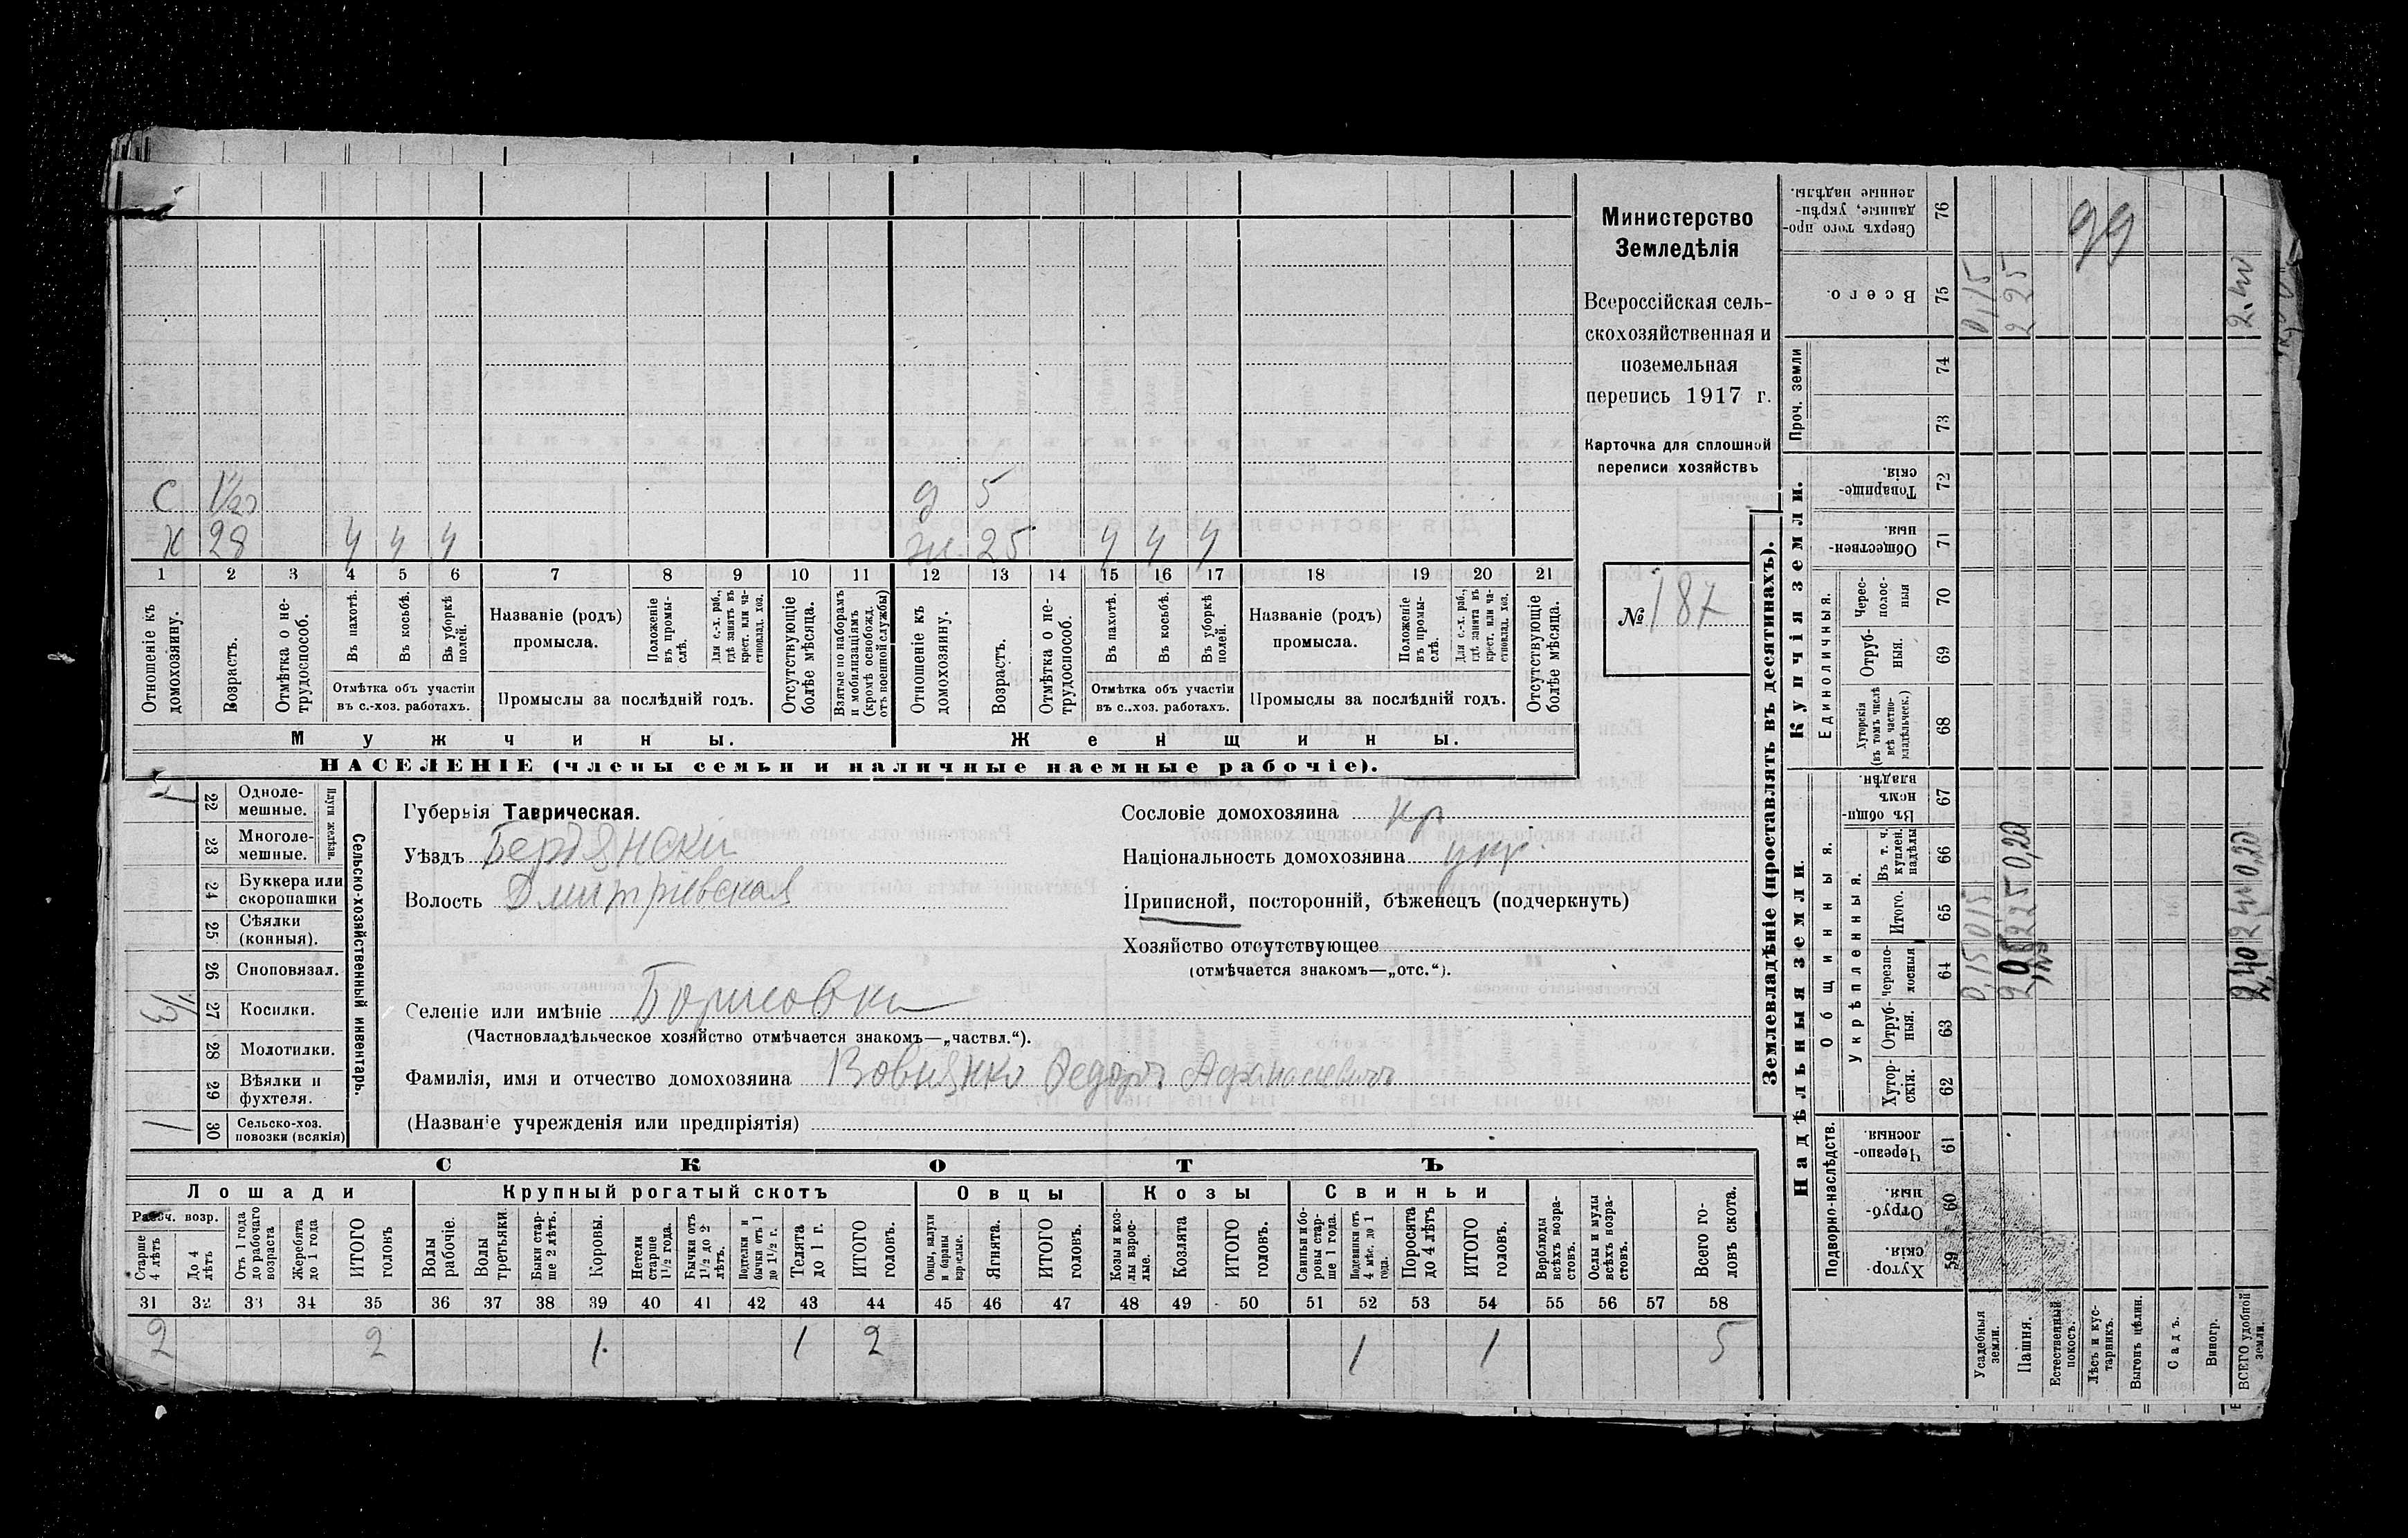 С 1½ д 5
Х 28 ч ч ч ж. 25 ч ч ч
1 2 3 4 5 6 7 8 9 10 11 12 13 14 15 16 17 18 19 20 21
Отношеніе къ домохозяину.
Возрастъ.
Отмѣтка о не-трудоспособ.
Въ пахотѣ.
Въ косьбѣ.
Въ уборкѣ полей.
Отмѣтка объ участіи
въ с.-хоз. работахъ.
Названіе (родъ)
промысла.
Положеніе въ промы-слѣ.
Для с.-х. раб., гдѣ занятъ въ крест. или ча-стновлад. хоз.
Промыслы за послѣдній годъ.
Отсутствующіе болѣе мѣсяца.
Взятые по наборамъ и мобилизаціямъ (кромѣ освобожд. отъ военной службы)
Отношеніе къ домохозяину.
Возрастъ.
Отмѣтка о не-трудоспособ.
Въ пахотѣ.
Въ косьбѣ.
Въ уборкѣ полей.
Отмѣтка объ участіи
въ с.-хоз. работахъ.
Названіе (родъ)
промысла.
Положеніе въ промы-слѣ.
Для с.-х. раб., гдѣ занята въ крест. или ча-стновлад. хоз.
Промыслы за послѣдній годъ.
Отсутствующіе болѣе мѣсяца.
Мужчины. Женщины.
НАСЕЛЕНІЕ (члены семьи и наличные наемные рабочіе).
Министерство
Земледѣлія
Всероссійская сель-
скохозяйственная и
поземельная
перепись 1917 г.
Карточка для сплошной
переписи хозяйствъ
№ 187
Сельско-хозяйственный инвентарь.
Плуги желѣзн.
1 22 Одноле-мешные.
23 Многоле-мешные.
24 Буккера или скоропашки
25 Сѣялки (конныя).
26 Сноповязал.
1/3 27 Косилки.
28 Молотилки.
29 Вѣялки и фухтеля.
1 30 Сельско-хоз. повозки (всякія)
Губернія Таврическая.
Уѣздъ Бердянскій
Волость Дмитріевская
Селеніе или имѣніе Борисовка
(Частновладѣльческое хозяйство отмѣчается знакомъ—„частвл.“).
Фамилія, имя и отчество домохозяина Вовнянко Федоръ Афанасіевичъ
(Названіе учрежденія или предпріятія)
Сословіе домохозяина кр
Національность домохозяина укр.
Приписной, посторонній, бѣженецъ (подчеркнуть)
Хозяйство отсутствующее
(отмѣчается знакомъ—„отс.“).
СКОТЪ
Лошади Крупный рогатый скотъ Овцы Козы Свиньи
Рабоч. возр.
Старше 4 лѣтъ
До 4 лѣтъ
Отъ 1 года до рабочаго возраста
Жеребята до 1 года
ИТОГО головъ
Волы рабочіе.
Волы третьяки.
Быки стар-ше 2 лѣтъ.
Коровы.
Нетели старше 1½ года.
Бычки отъ 1½ до 2 лѣтъ.
Подтелки и бычки отъ 1 до 1½ г.
Телята до 1 г.
ИТОГО головъ.
Овцы, валухи и бараны взрослые.
Ягнята.
ИТОГО головъ.
Козы и коз-лы взрос-лые.
Козлята
ИТОГО головъ.
Свиньи и бо-ровы стар-ше 1 года.
Подсвинки отъ 4 мѣс. до 1 года.
Поросята до 4 лѣтъ
ИТОГО головъ.
Верблюды всѣхъ возра-стовъ.
Ослы и мулы всѣхъ возра-стовъ.
Всего го-ловъ скота.
31 32 33 34 35 36 37 38 39 40 41 42 43 44 45 46 47 48 49 50 51 52 53 54 55 56 57 58
2 2 1. 1 2 1 1 5
Землевладѣніе (проставлять въ десятинахъ).
Надѣльныя земли. Купчія земли.
Подворно-наслѣдств.
Общинныя.
Укрѣпленныя.
Единоличныя.
Проч. земли
Хутор-скія. 59
Отруб-ныя. 60
Черезпо-лосныя. 61
Хутор-скія. 62
Отруб-ныя. 63
Черезпо-лосныя 64
Итого. 65
Въ т. ч. куплен. надѣлы 66
Въ общин-номъ владѣн. 67
Хуторскія (въ томъ числѣ всѣ частно-владѣльческ.) 68
Отруб-ныя. 69
Черес-полос-ныя 70
Обществен-ныя. 71
Товарище-скія. 72
73
74
Всего. 75
Сверхъ того про-данные, укрѣп-ленные надѣлы. 76
Усадебныя земли. 0,15 0,15 0,15
Пашня. 2,25 0,20 2 25
Естественный покосъ.
Лѣсъ и кус-тарникъ.
Выгонъ цѣлин.
Садъ.
Виногр.
ВСЕГО удобной земли. 2,40 2,40 0,20 2,40
99